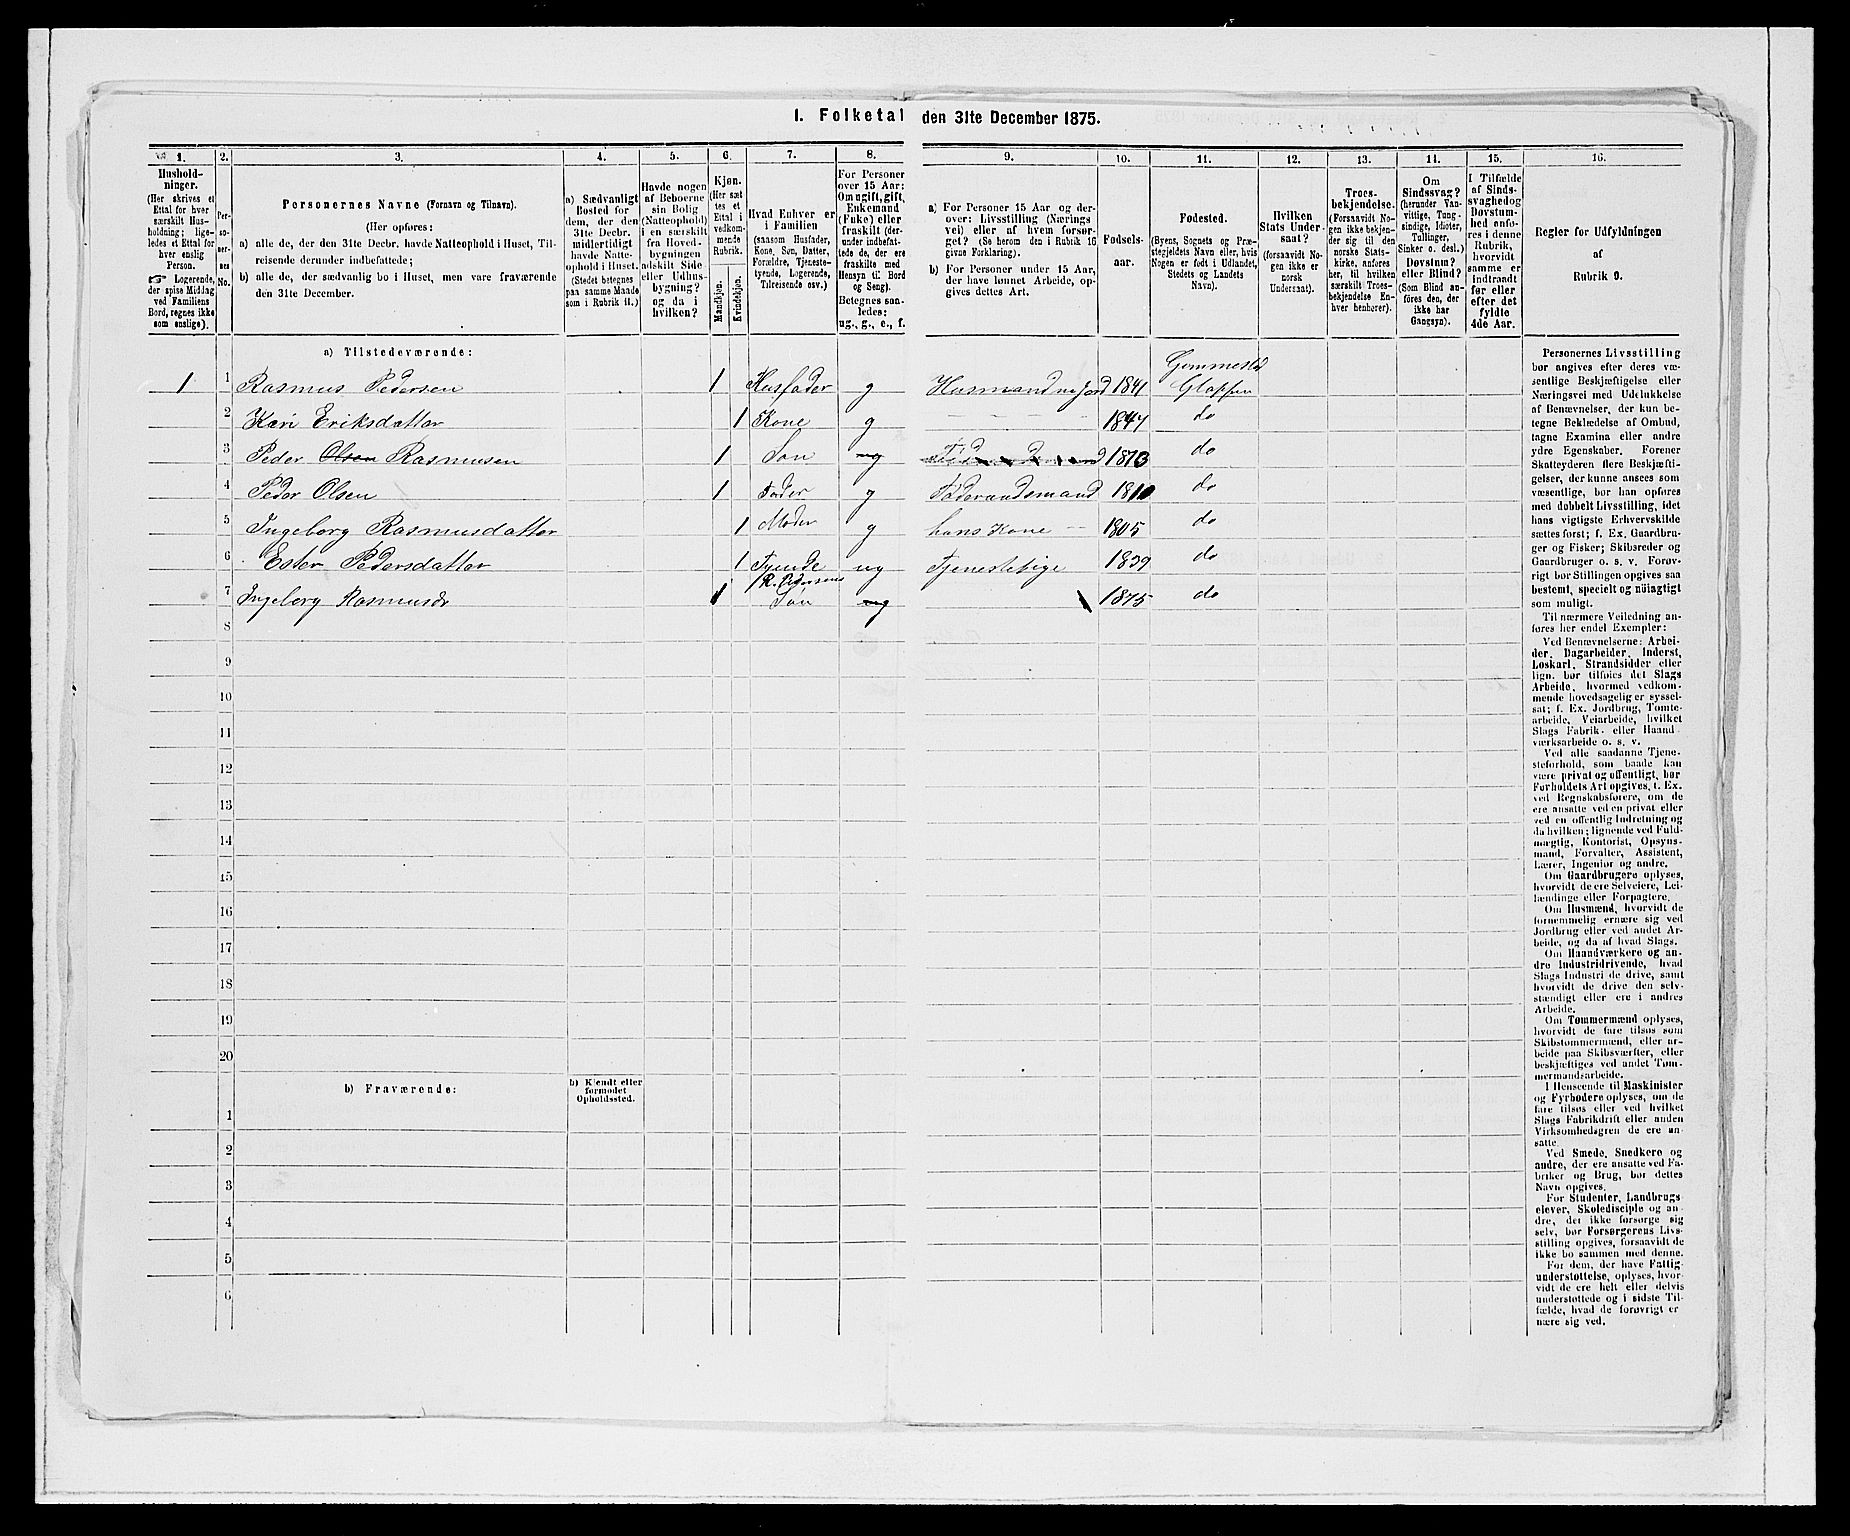 I. Folketal den 31te December 1875.
1. 2. 3. 4. 5. 6. 7. 8. 9. 10. 11. 12. 13. 14. 15. 16.
Hushold-
ninger.
(Her skrives et
Ettal for hver
særskilt Hus-
holdning; lige-
ledes et Ettal for
hver enslig
Person.
☞ Logerende,
der spise Middag
ved Familiens
Bord, regnes ikke
som enslige).
Per-
so-
ner-
nes
No.
Personernes Navne (Fornavn og Tilnavn).
(Her opføres:
a) alle de, der den 31te Decbr. havde Natteophold i Huset, Til-
reisende derunder indbefattede;
b) alle de, der sædvanlig bo i Huset, men vare fraværende
den 31te December.
a) Sædvanligt
Bosted for
dem, der den
31te Decbr.
midlertidigt
havde Natte-
ophold i Huset.
(Stedet betegnes
paa samme Maade
som i Rubrik 11.)
Havde nogen
af Beboerne
sin Bolig
(Natteophold)
i en særskilt
fra Hoved-
bygningen
adskilt Side-
eller Udhus-
bygning?
og da i
hvilken?
Kjøn.
(Her sæt-
tes et
Ettal i
vedkom-
mende
Rubrik.
Mandkjøn.
Kvindekjøn.
Hvad Enhver er
i Familien
(saasom Husfader,
Kone, Søn, Datter,
Forældre, Tjeneste-
tyende, Logerende,
Tilreisende osv.)
For Personer
over 15 Aar:
Om ugift, gift,
Enkemand
(Enke) eller
fraskilt (der-
under indbefat-
tede de, der ere
fraskilte med
Hensyn til Bord
og Seng).
Betegnes saa-
ledes:
ug., g., e., f.
a) For Personer 15 Aar og der-
over: Livsstilling (Nærings-
vei) eller af hvem forsør-
get? (Se herom den i Rubrik 16
givne Forklaring).
b) For Personer under 15 Aar,
der have lønnet Arbeide, op-
gives dettes Art.
Fødsels-
aar.
Fødested.
(Byens, Sognets og Præ-
stegjeldets Navn eller, hvis
Nogen er født i Udlandet,
Stedets og Landets
Navn).
Hvilken
Stats Under-
saat?
(forsaavidt No-
gen ikke er
norsk
Undersaat).
Troes-
bekjendelse.
(Forsaavidt No-
gen ikke bekjen-
der sig til den
norske Stats-
kirke, anføres
her, til hvilken
særskilt Troes-
bekjendelse En-
hver henhører).
Om
Sindssvag?
(herunder Van-
vittige, Tung-
sindige, Idioter,
Tullinger,
Sinker o. desl.)
Døvstum?
eller Blind?
(Som Blind an-
føres den, der
ikke har
Gangsyn).
I Tilfælde
af Sinds-
svaghed og
Døvstum-
hed anfø-
res i denne
Rubrik,
hvorvidt
samme er
indtraadt
før eller
efter det
fyldte
4de Aar.
Regler for Udfyldningen
af
Rubrik 9.
a) Tilstedeværende:
1 1 Rasmus Pedersen 1 Husfader g Husmand m jord 1841 Gemmestad Gloppen
2 Kari Eriksdatter 1 Kone g - - - - 1847 do
3 Peder Olsen Rasmusen 1 Søn ug 1873 do
4 Peder Olsen 1 Fader g Føderaadsmand 1810 do
5 Ingeborg Rasmusdatter 1 Moder g hans Kone - 1805 do
6 Ester Pedersdatter 1 Tyende ug Tjenestepige 1839 do
7 Ingeborg Rasmusdr 1 R. Pedersens Søn ug 1875 do
8
9
10
11
12
13
14
15
16
17
18
19
20
b) Fraværende:
b) Kjendt eller
formodet
Opholdssted.
1
2
3
4
5
6
Personernes Livsstilling
bør angives efter deres væ-
sentlige Beskjæftigelse eller
Næringsvei med Udelukkelse
af Benævnelser, der kun be-
tegne Beklædelse af Ombud,
tagne Examina eller andre
ydre Egenskaber. Forener
Skatteyderen flere Beskjæfti-
gelser, der kunne ansees som
væsentlige, bør han opføres
med dobbelt Livsstilling, idet
hans vigtigste Erhvervskilde
sættes først; f. Ex. Gaardbru-
ger og Fisker; Skibsreder og
Gaardbruger o. s. v. Forøv-
rigt bør Stillingen opgives saa
bestemt, specielt og nøiagtigt
som muligt.
Til nærmere Veiledning an-
føres her endel Exempler:
Ved Benævnelserne: Arbei-
der, Dagarbeider, Inderst,
Løskarl, Strandsidder eller
lign. bør tilføies det Slags
Arbeide, hvormed vedkom-
mende hovedsagelig er syssel-
sat; f. Ex. Jordbrug, Tomte-
arbeide, Veiarbeide, hvilket
Slags Fabrik- eller Haand-
værksarbeide o. s. v.
Ved alle saadanne Tjene-
steforhold, som baade kan
være privat og offentligt, bør
Forholdets Art opgives, f. Ex.
ved Regnskabsførere, om de
ere ansatte ved en privat eller
ved en offentlig Indretning og
da hvilken; lignende ved Fuld-
mægtig, Kontorist, Opsyns-
mand, Forvalter, Assistent,
Lærer, Ingeniør og andre.
Om Gaardbrugere oplyses,
hvorvidt de ere Selveiere, Lei-
lændinge eller Forpagtere.
Om Husmænd, hvorvidt de
fornemmelig ernære sig ved
Jordbrug eller ved andet Ar-
beide, og da af hvad Slags.
Om Haandværkere og an-
dre Industridrivende, hvad
Slags Industri de drive, samt
hvorvidt de drive den selv-
stændigt eller ere i andres
Arbeide.
Om Tømmermænd oplyses,
hvorvidt de fare tilsøs som
Skibstømmermænd, eller ar-
beide paa Skibsværfter, eller
beskjæftiges ved andet Tøm-
mermandsarbeide.
I Henseende til Maskinister
og Fyrbødere oplyses, om de
fare tilsøs eller ved hvilket
Slags Fabrikdrift eller anden
Virksomhedsgren de ere an-
satte.
Ved Smede, Snedkere og
andre, der ere ansatte ved Fa-
briker og Brug, bør dettes
Navn opgives.
For Studenter, Landbrugs-
elever, Skoledisciple og an-
dre, der ikke forsørge sig
selv, bør Forsørgerens Livs-
stilling opgives, forsaavidt de
ikke bo sammen med denne.
For dem, der have Fattig-
understøttelse, oplyses, hvor-
vidt de ere helt eller delvis
understøttede og i sidste Til-
fælde, hvad de forøvrigt er-
nære sig ved.